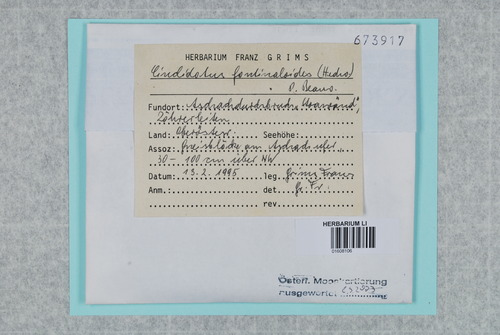 673917
HERBARIUM FRANZ GRIMS
Cinclidotus fontinaloides (Hedw)
P. Beauv.
Fundort: Aschachdurchbruch,
Land: Oberösterr. Seehöhe:
Assoz: am Aschachufer,
30 - 100 cm über NW
Datum: 13.2.1995 leg. Grims Franz
Anm.: det. Gr. Fr.
rev.
HERBARIUM LI
Österr. Mooskartierung
Ausgewertet